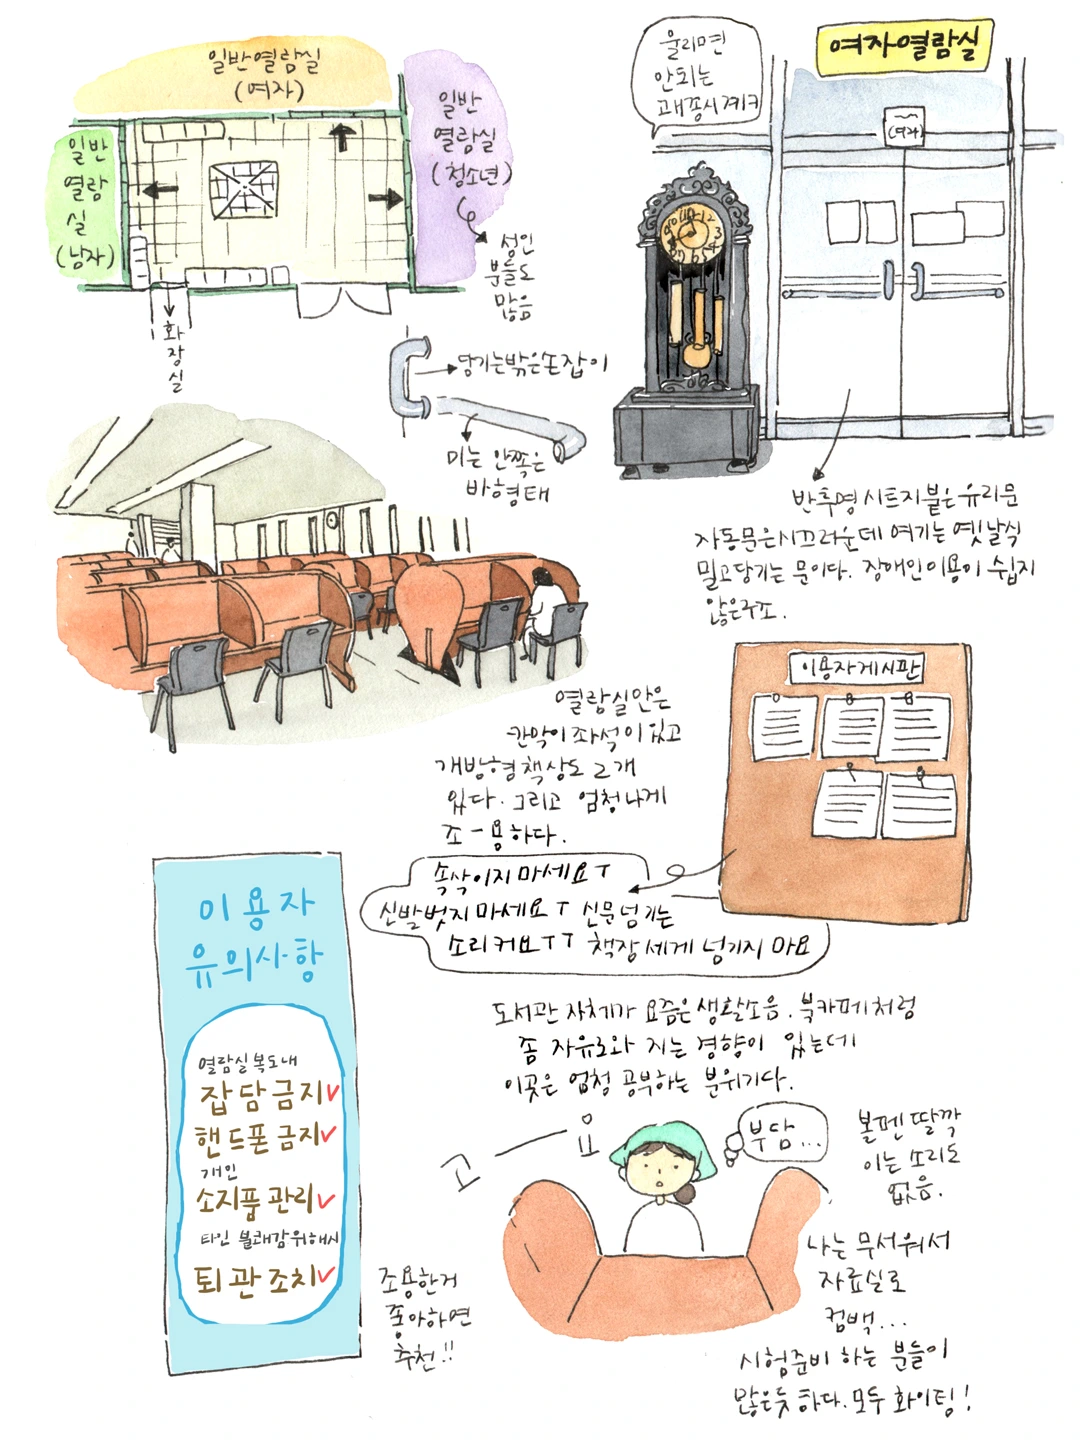 일반열람실
(여자)
일반
열람
실
(남자)
일반
열람실
(청소년)
성인
분들도
많음
화
장
실
울리면
안되는
괘종시계ㅋ
여자열람실
(여자)
당기는밖은손잡이
미는 안쪽은
바형태
반투명시트지붙은유리문
자동문은시끄러운데 여기는 옛날식
밀고당기는 문이다. 장애인이용이 쉽지
않은구조.
이용자게시판
열람실안은
칸막이좌석이있고
개방형책상도 2개
있다. 그리고 엄청나게
조-용하다.
속삭이지마세요ㅜ
신발벗지마세요ㅜ 신문넘기는
소리커요ㅜㅜ 책장세게 넘기지 마요
이용자
유의사항
열람실복도내
잡담금지✓
핸드폰금지✓
개인
소지품관리✓
타인 불쾌감위해시
퇴관조치✓
도서관 자체가 요즘은생활소음. 북카페처럼
좀 자유로와 지는 경향이 있는데
이곳은 엄청 공부하는 분위기다.
고ー요
부담...
볼펜딸깍
이는 소리도
없음.
나는무서워서
자료실로
컴백...
조용한거
좋아하면
추천!!
시험준비 하는 분들이
많은듯하다. 모두 화이팅!